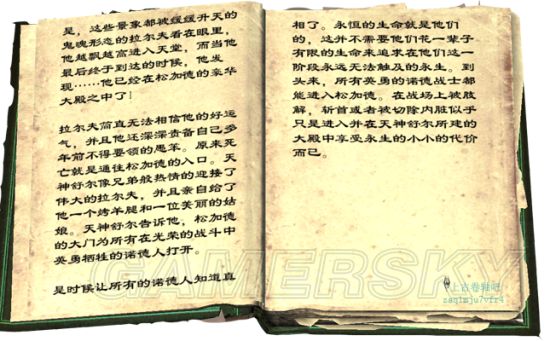 是，这些景象都被缓缓升天的
鬼魂形态的拉尔夫看在眼里，
他越飘越高进入天堂，而当他
最后终于到达的时候，他发
现……他已经在松加德的豪华
大殿之中了！
拉尔夫简直无法相信他的好运
气，并且他还深深责备自己多
年前不得要领的愚笨。原来死
亡就是通往松加德的入口。天
神舒尔像兄弟般热情的迎接了
伟大的拉尔夫，并且亲自给了
他一个烤羊腿和一位美丽的姑
娘。天神舒尔告诉他，松加德
的大门为所有在光荣的战斗中
英勇牺牲的诺德人打开。
是时候让所有的诺德人知道真
相了。永恒的生命就是他们
的，这并不需要他们花一辈子
有限的生命来追求在他们这一
阶段永远无法触及的永生。到
头来，所有英勇的诺德战士都
能进入松加德。在战场上被肢
解，斩首或者被切除内脏似乎
只是进入并在天神舒尔所建的
大殿中享受永生的小小的代价
而已。
GAMERSKY
上古卷轴吧
zaq1mju7vfr4